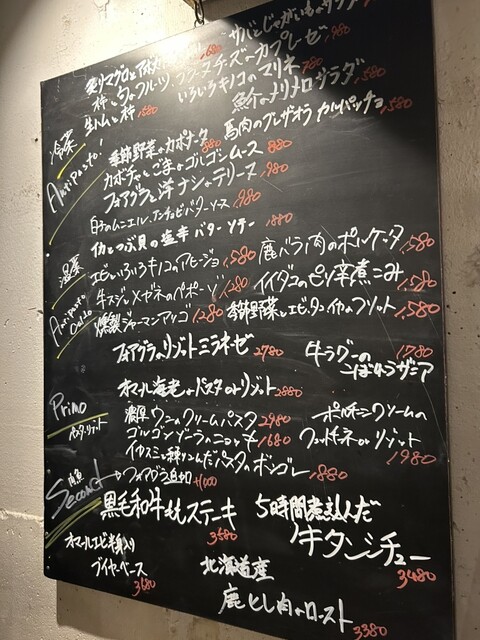 サバとじゃがいものサラダ
柿とラ・フルーツ、ブッファチーズのカプレーゼ 980
生ハムと柿 1580
いろいろキノコのマリネ 780
魚介のメリメロサラダ 1580
冷菜
Antipasto
季節野菜のカポナータ 880
馬肉のブレザオラ カルパッチョ 1580
カボチャとごまのゴルゴンムース 880
フォアグラと洋ナシのテリーヌ 980
白子のムニエル、アンチョビバターソース 1980
イカとつぶ貝の塩辛バターソテー 1880
温菜
Antipasto Caldo
エビといろいろキノコのアヒージョ 1580
鹿バラ肉のポルケッタ 1580
牛スジとメガネのペポーゾ 1280
イイダコのピリ辛煮こみ 1580
燻製ジャーマンアリゴ 1280
季節野菜とエビ、タコ、イカのフリット 1580
フォアグラのリゾットミラネーゼ 2780
牛ラグーの 1780
ごぼうラザニア
Primo
パスタ・リゾット
オマール海老のパスタorリゾット 2880
濃厚ウニのクリームパスタ 2980
ポルチーニクリームの
ゴルゴンゾーラのニョッキ 1680
フェットチーネorリゾット 1980
パスタのボンゴレ 1880
Second
→フォアグラ追加 +1000
黒毛和牛ももステーキ 3580
5時間煮込んだ
牛タンシチュー 3480
オマールエビ半身入り
ブイヤベース 3680
北海道産
鹿ヒレ肉のロースト 3380